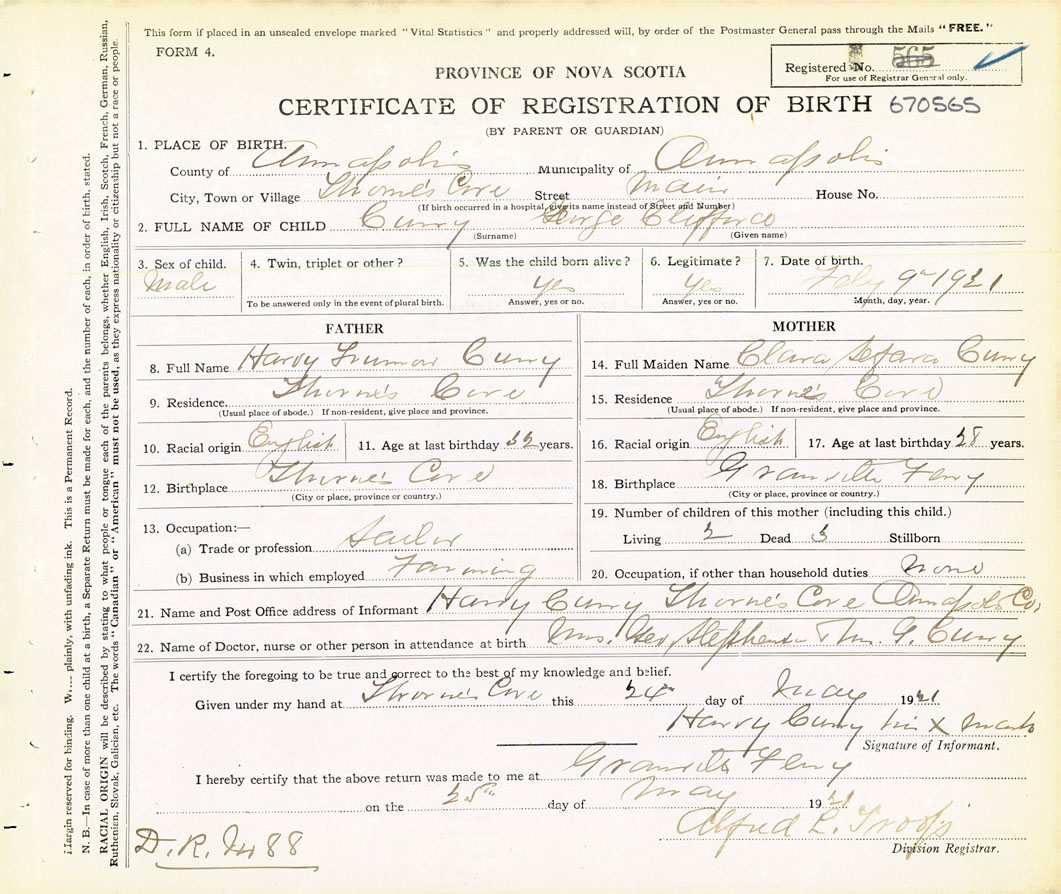 This form if placed in an unsealed envelope marked "Vital Statistics" and properly addressed will, by order of the Postmaster General pass through the Mails "FREE."
FORM 4.
Registered No. 565
For use of Registrar General only.
PROVINCE OF NOVA SCOTIA
CERTIFICATE OF REGISTRATION OF BIRTH 670565
(BY PARENT OR GUARDIAN)
1. PLACE OF BIRTH.
County of Annapolis Municipality of Annapolis
City, Town or Village Thorne's Cove Street Main House No.
(If birth occurred in a hospital, give its name instead of Street and Number)
2. FULL NAME OF CHILD Curry George Clifford
(Surname) (Given name)
3. Sex of child. Male
4. Twin, triplet or other?
To be answered only in the event of plural birth.
5. Was the child born alive? Yes
Answer, yes or no.
6. Legitimate? Yes
Answer, yes or no.
7. Date of birth. Feby 9th 1921
Month, day, year.
FATHER
8. Full Name Harry Curry
9. Residence Thorne's Cove
(Usual place of abode.) If non-resident, give place and province.
10. Racial origin English 11. Age at last birthday years.
12. Birthplace Thorne's Cove
(City or place, province or country.)
13. Occupation:—
(a) Trade or profession Sailor
(b) Business in which employed Farming
MOTHER
14. Full Maiden Name Clara Curry
15. Residence Thorne's Cove
(Usual place of abode.) If non-resident, give place and province.
16. Racial origin English 17. Age at last birthday years.
18. Birthplace Granville Ferry
(City or place, province or country.)
19. Number of children of this mother (including this child.)
Living 2 Dead 3 Stillborn
20. Occupation, if other than household duties None
21. Name and Post Office address of Informant Harry Curry Thorne's Cove Annapolis Co,
22. Name of Doctor, nurse or other person in attendance at birth Mrs. Geo, Curry
I certify the foregoing to be true and correct to the best of my knowledge and belief.
Given under my hand at Thorne's Cove this 24th day of May 1921
Harry Curry his X mark
Signature of Informant.
I hereby certify that the above return was made to me at Granville Ferry
on the 25th day of May 1921
Alfred L. Troop
Division Registrar.
D.R. No 88
Margin reserved for binding. plainly, with unfading ink. This is a Permanent Record.
N. B.—In case of more than one child at a birth, a Separate Return must be made for each, and the number of each, in order of birth, stated.
RACIAL ORIGIN will be described by stating to what people or tongue each of the parents belongs, whether English, Irish, Scotch, French, German, Russian,
Ruthenian, Slovak, Galician, etc. The words "Canadian" or "American" must not be used, as they express nationality or citizenship but not a race or people.